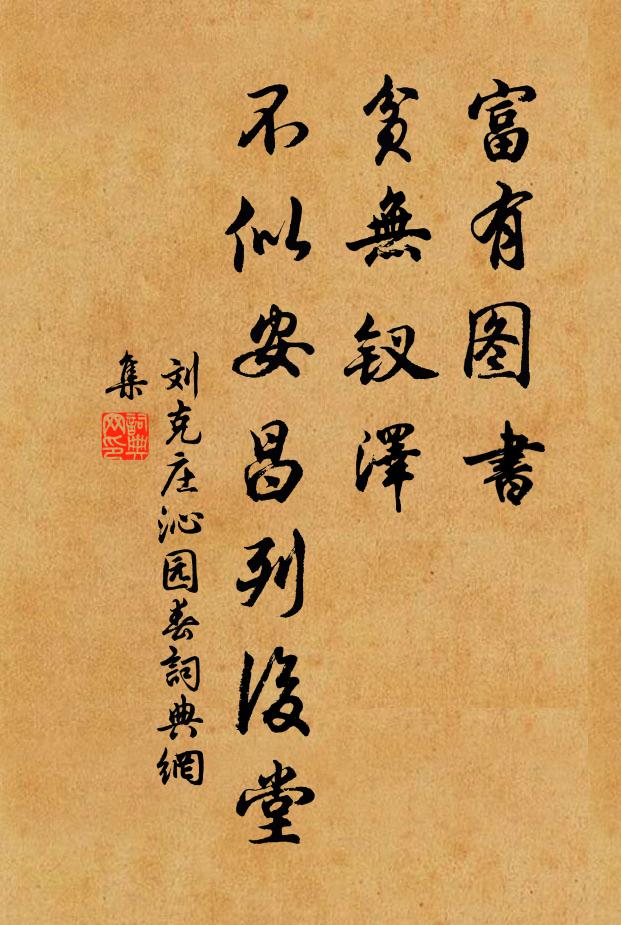 富有图書
貧無釵澤
不似安昌列後堂
刘克庄沁园春詞典網
集
詞典
网印